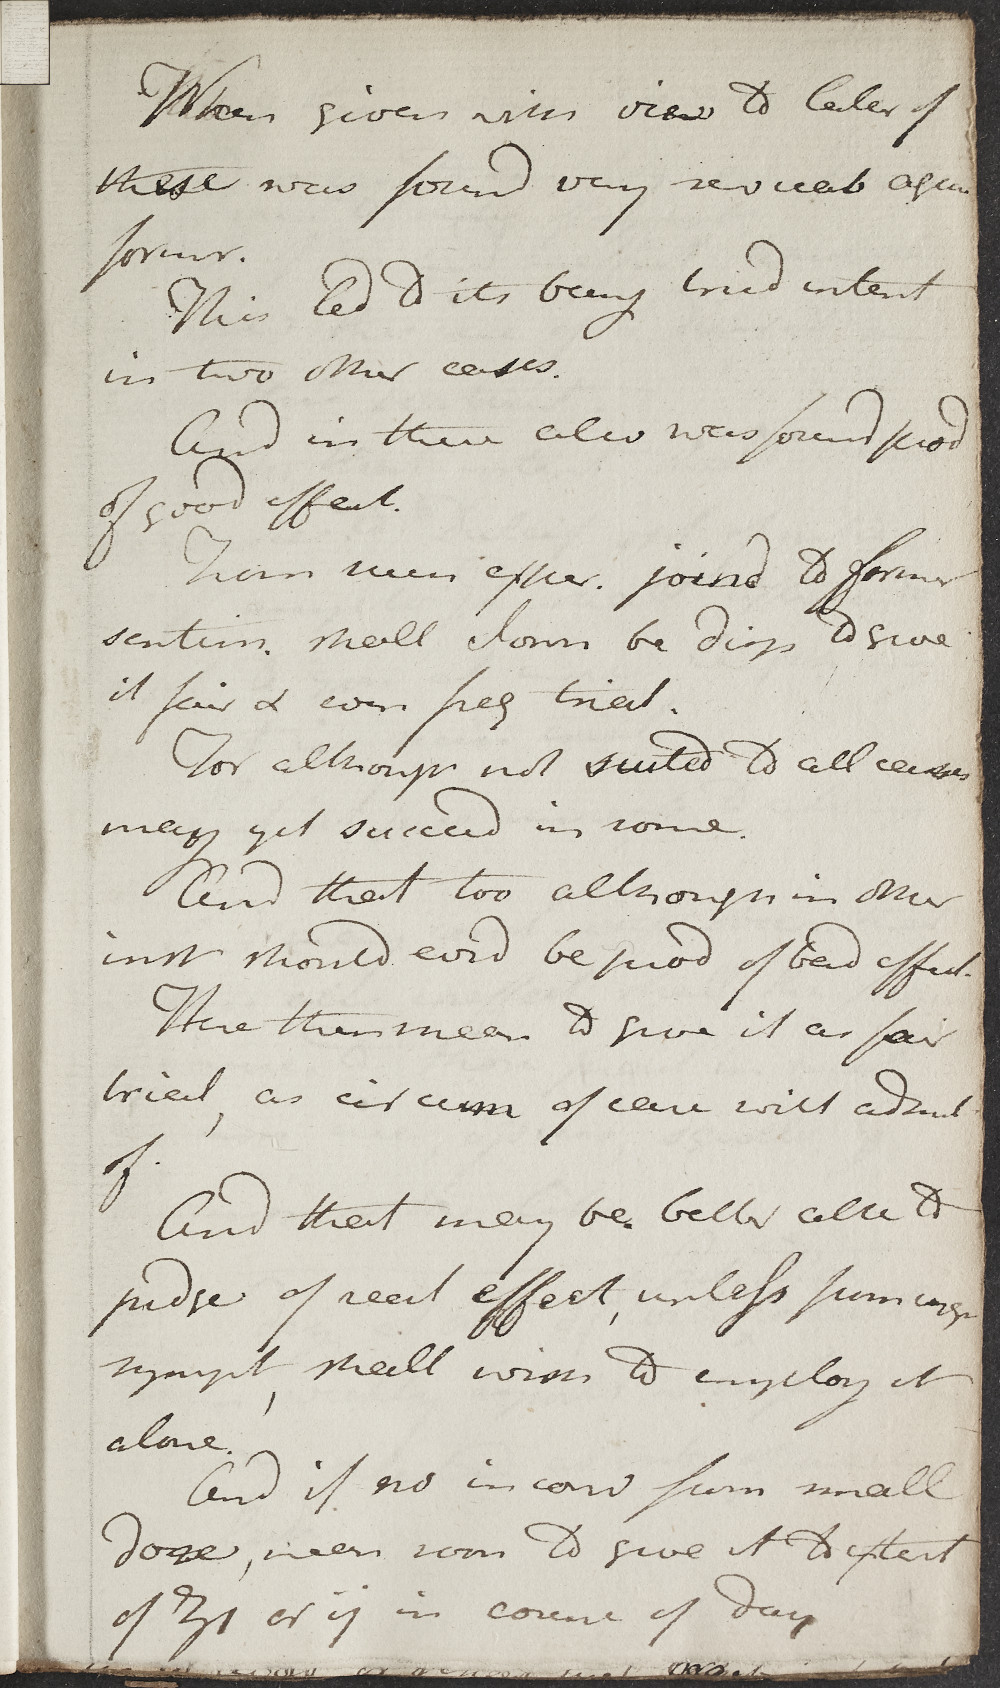 When given with view to latter of
these was found very servicab again
former.
This led to its being tried intent
in two other cases.
And in these also was found prod
of good effect.
From such exper. joind to former
sentim. shall
be disp to give
it fair & even freq trial.
For although not suited to all cases
may yet succeed in some.
And that too although in other
inst should evid be prod of bad effect.
Here then mean to give it as fair
trial, as circum of case will admit
of.
And that may be better able to
judge of real effect, unless from urgt
sympt, shall wish to employ it
alone.
And if no inconv from small
doze, mean soon to give it to extent
of ʒi or ij in course of day